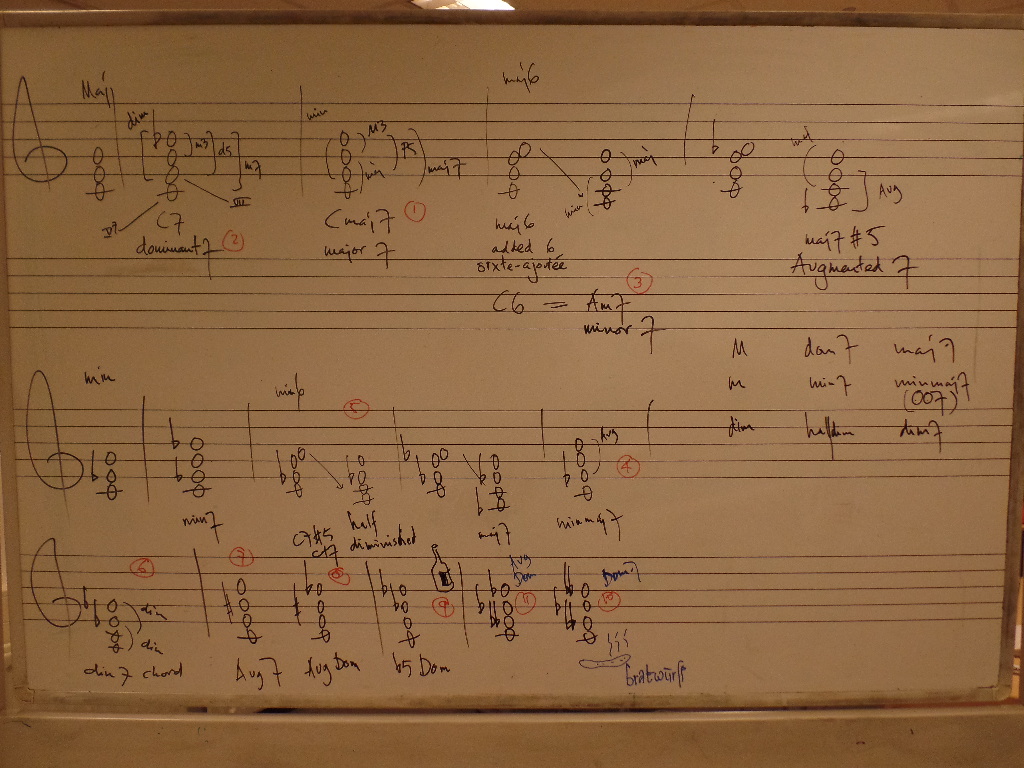 Maj
maj6
dim
m3
d5
m7
min
M3
P5
min
maj7
maj
min
Aug
V7
VII
C7
2
dominant7
Cmaj7
1
major 7
maj6
added 6
sixte-ajoutée
maj7 #5
Augmented 7
C6 = Am7
3
minor 7
M dom7 maj7
m min7 minmaj7
(007)
dim halfdim dim7
min
min6
5
Aug
4
min7
half
diminished
maj7
minmaj7
6
7
C7#5
C+7
8
9
Aug
Dom
11
Dom7
10
dim
dim
dim7 chord
Aug7
Aug Dom
b5 Dom
bratwürst